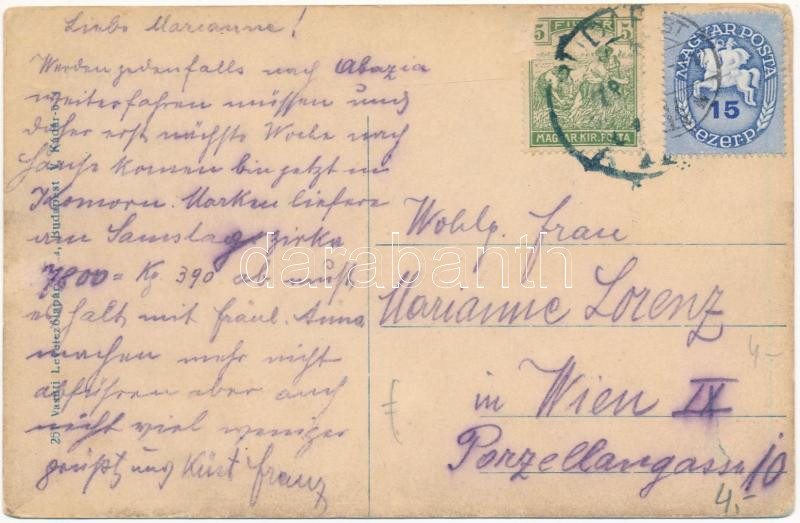 Liebe Marianne!
Werden jedenfalls nach Abazia
weiterfahren müssen und
daher erst nächste Woche nach
Hause komen bin jetzt in
Komorn. Marken liefere
am Samstag zirka
7800= Kg. 390 ab muß
erhalt mit fräul. Anna
machen mehr nicht
aber auch
nicht viel weniger
grüßt und Küst franz
Wohlg. frau
Marianne Lorenz
in Wien IX
Porzellangasse 10
4.-
4.-
5 FILLÉR
MAGYAR KIR. POSTA
MAGYAR POSTA
15
ezer-p.
Vasuti Levelezőlapárusítás Budapest
darabanth